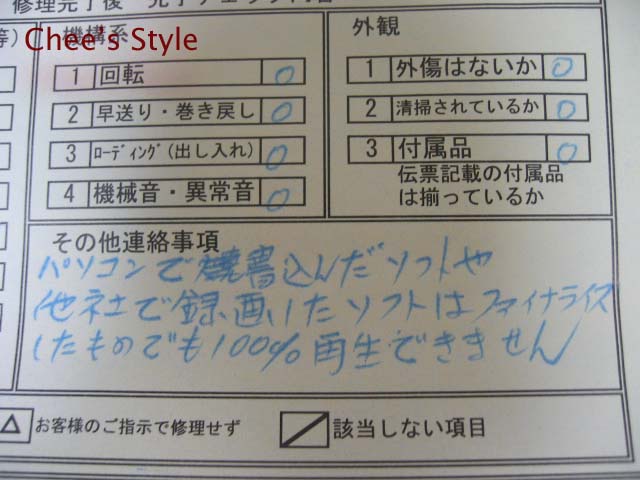 修理完了後
等)
Chee's Style
機構系
1 回転 ○
2 早送り・巻き戻し ○
3 ローディング(出し入れ) ○
4 機械音・異常音 ○
外観
1 外傷はないか ○
2 清掃されているか ○
3 付属品 ○
伝票記載の付属品
は揃っているか
その他連絡事項
パソコンで書込んだソフトや
他社で録画したソフトはファイナライズ
したものでも100%再生できません
△ お客様のご指示で修理せず
該当しない項目